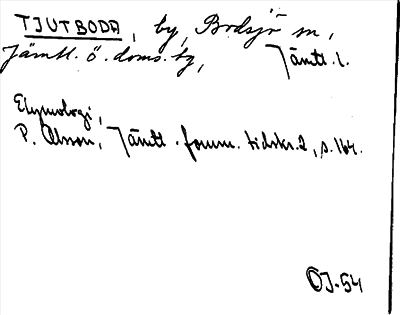 TJUTBODA, by, Bodsjö sn,
Jämtl. ö. doms. hg, Jämtl. l.
Etymologi,
P. Olsson, Jämtl. fornm. tidskr. 2, s. 164.
OJ-54